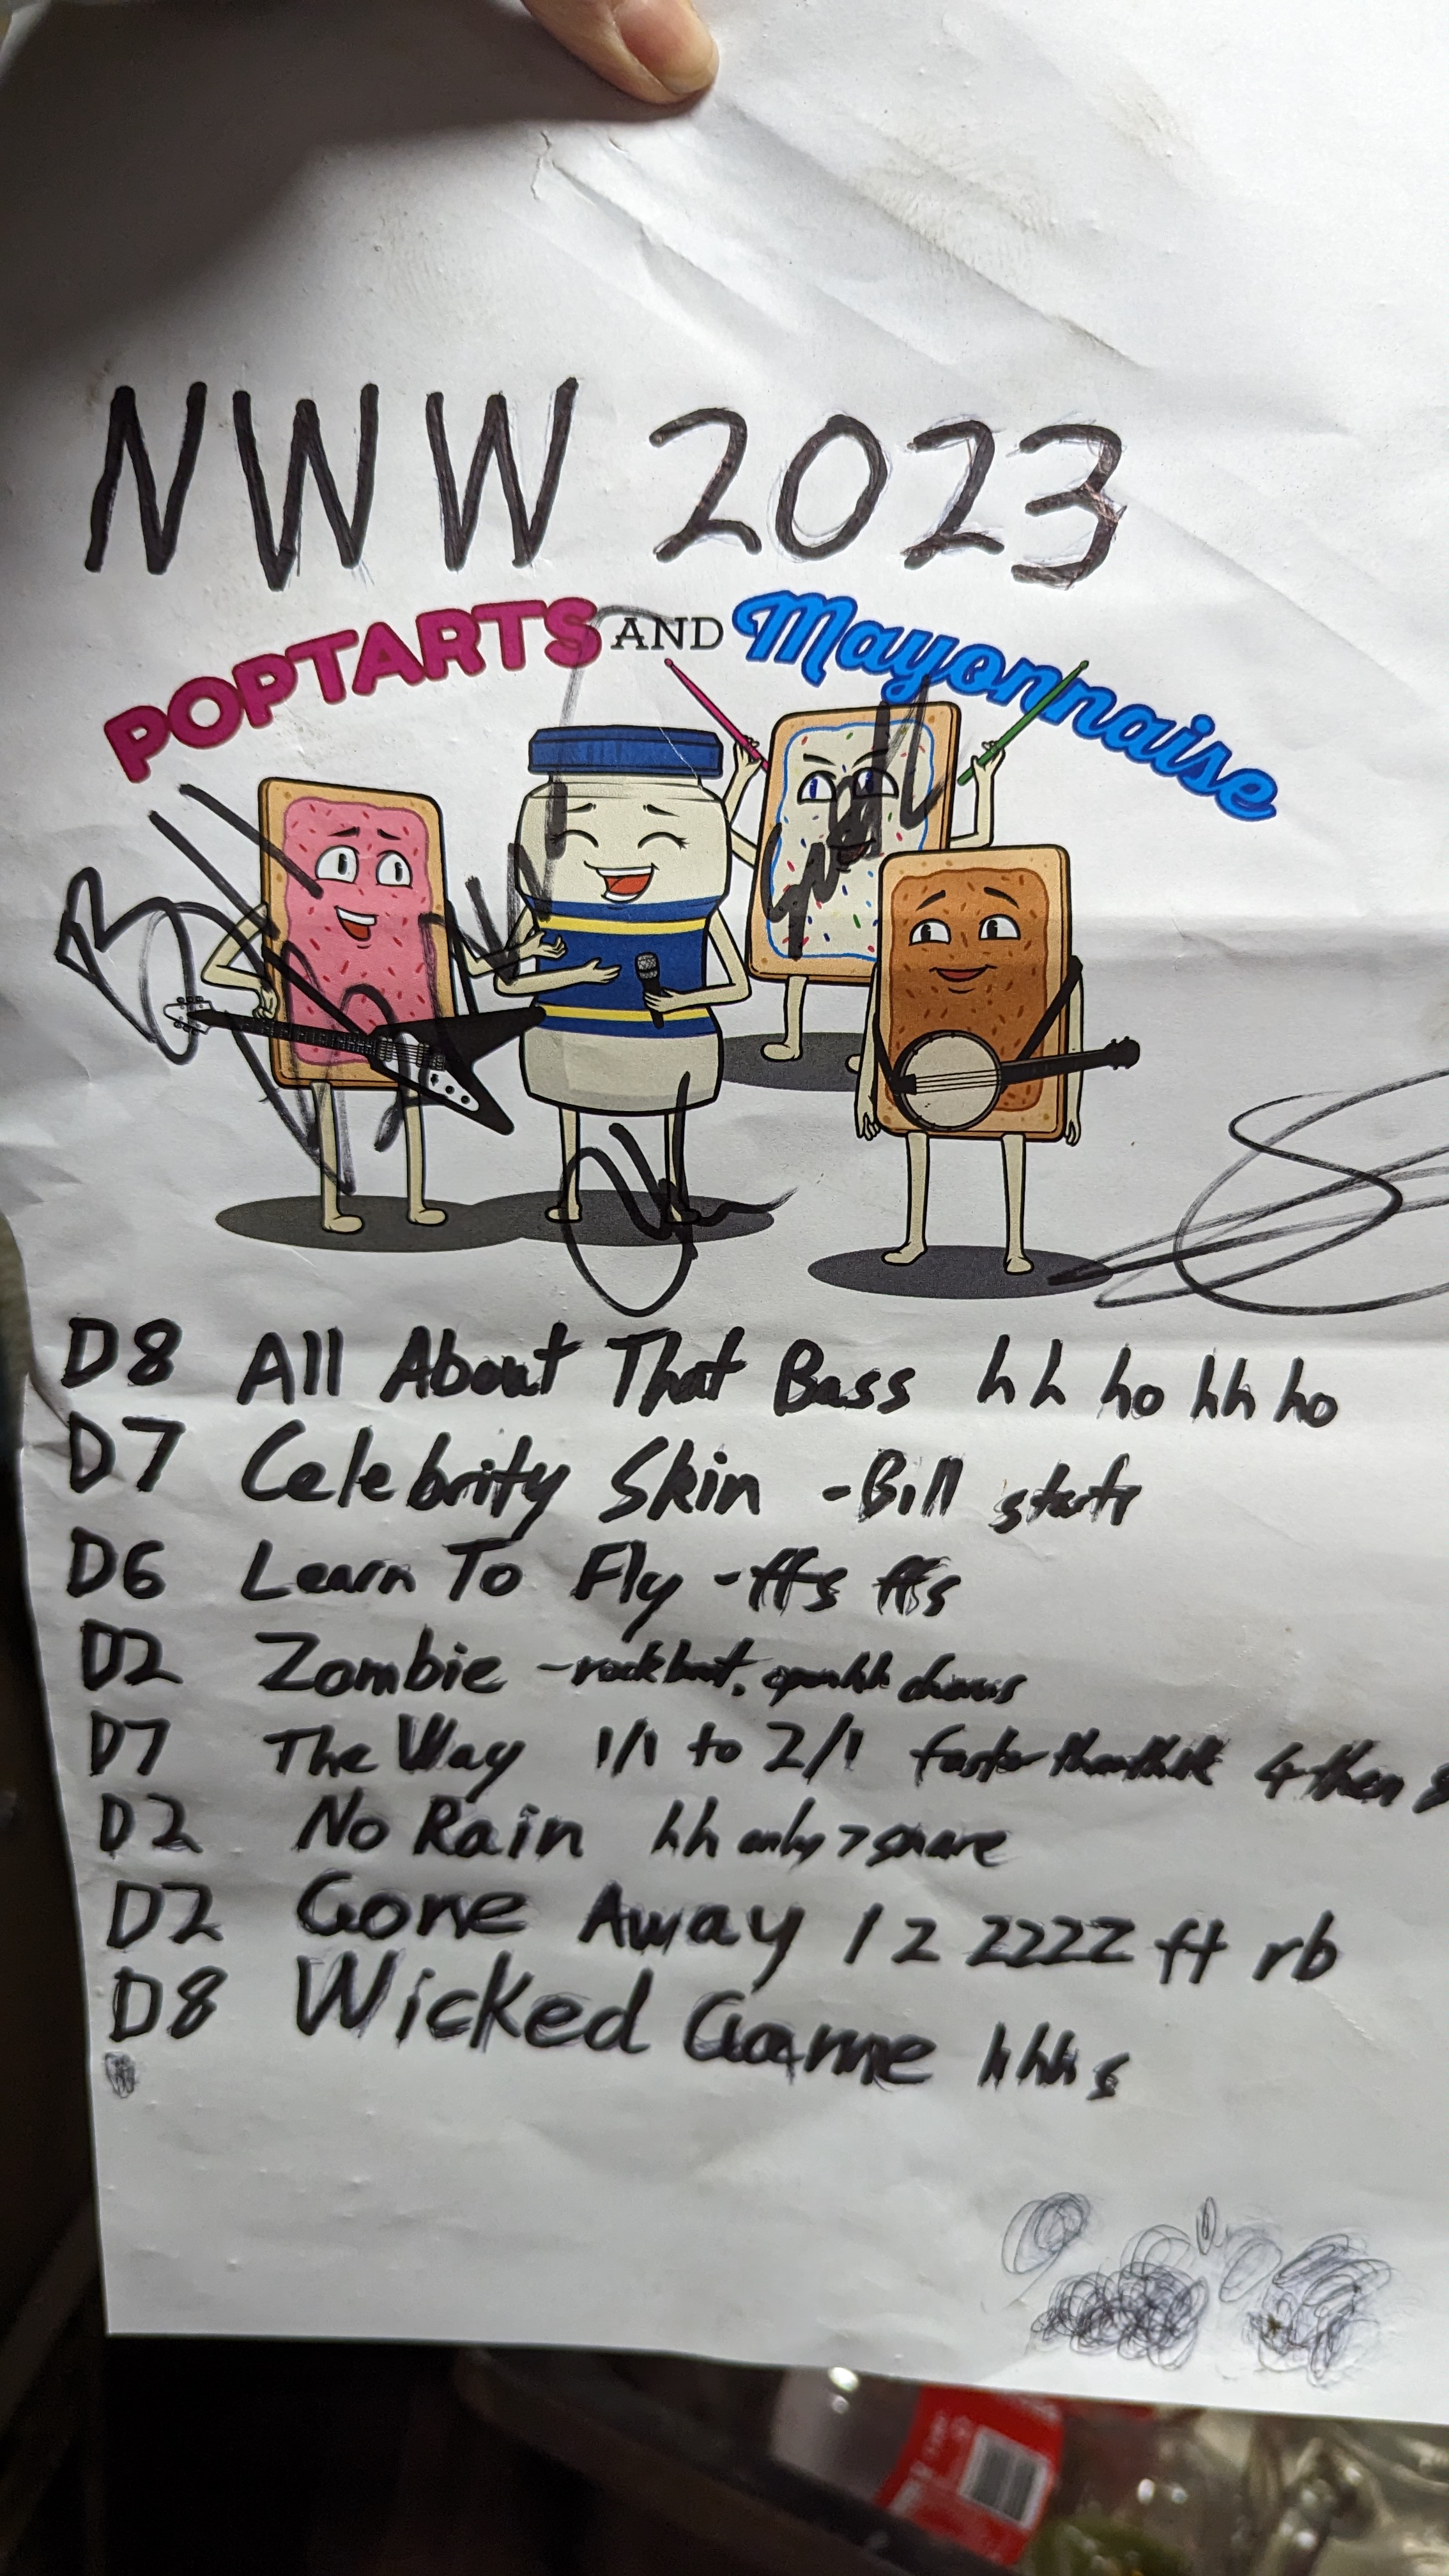 NWW 2023
POPTARTS AND Mayonnaise
D8 All About That Bass hh ho hh ho
D7 Celebrity Skin - Bill starts
D6 Learn To Fly - ffs ffs
D2 Zombie - rock beat, open hh chorus
D7 The Way 1/1 to 2/1 faster than think 4 then
D2 No Rain hh only > snare
D2 Gone Away 1 2 2222 ft rb
D8 Wicked Game hhh s